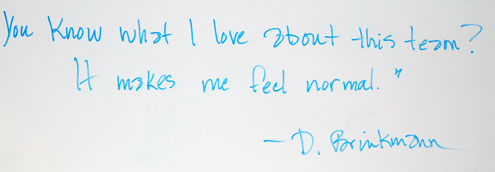 You know what I love about this team?
It makes me feel normal."
—D. Brinkmann